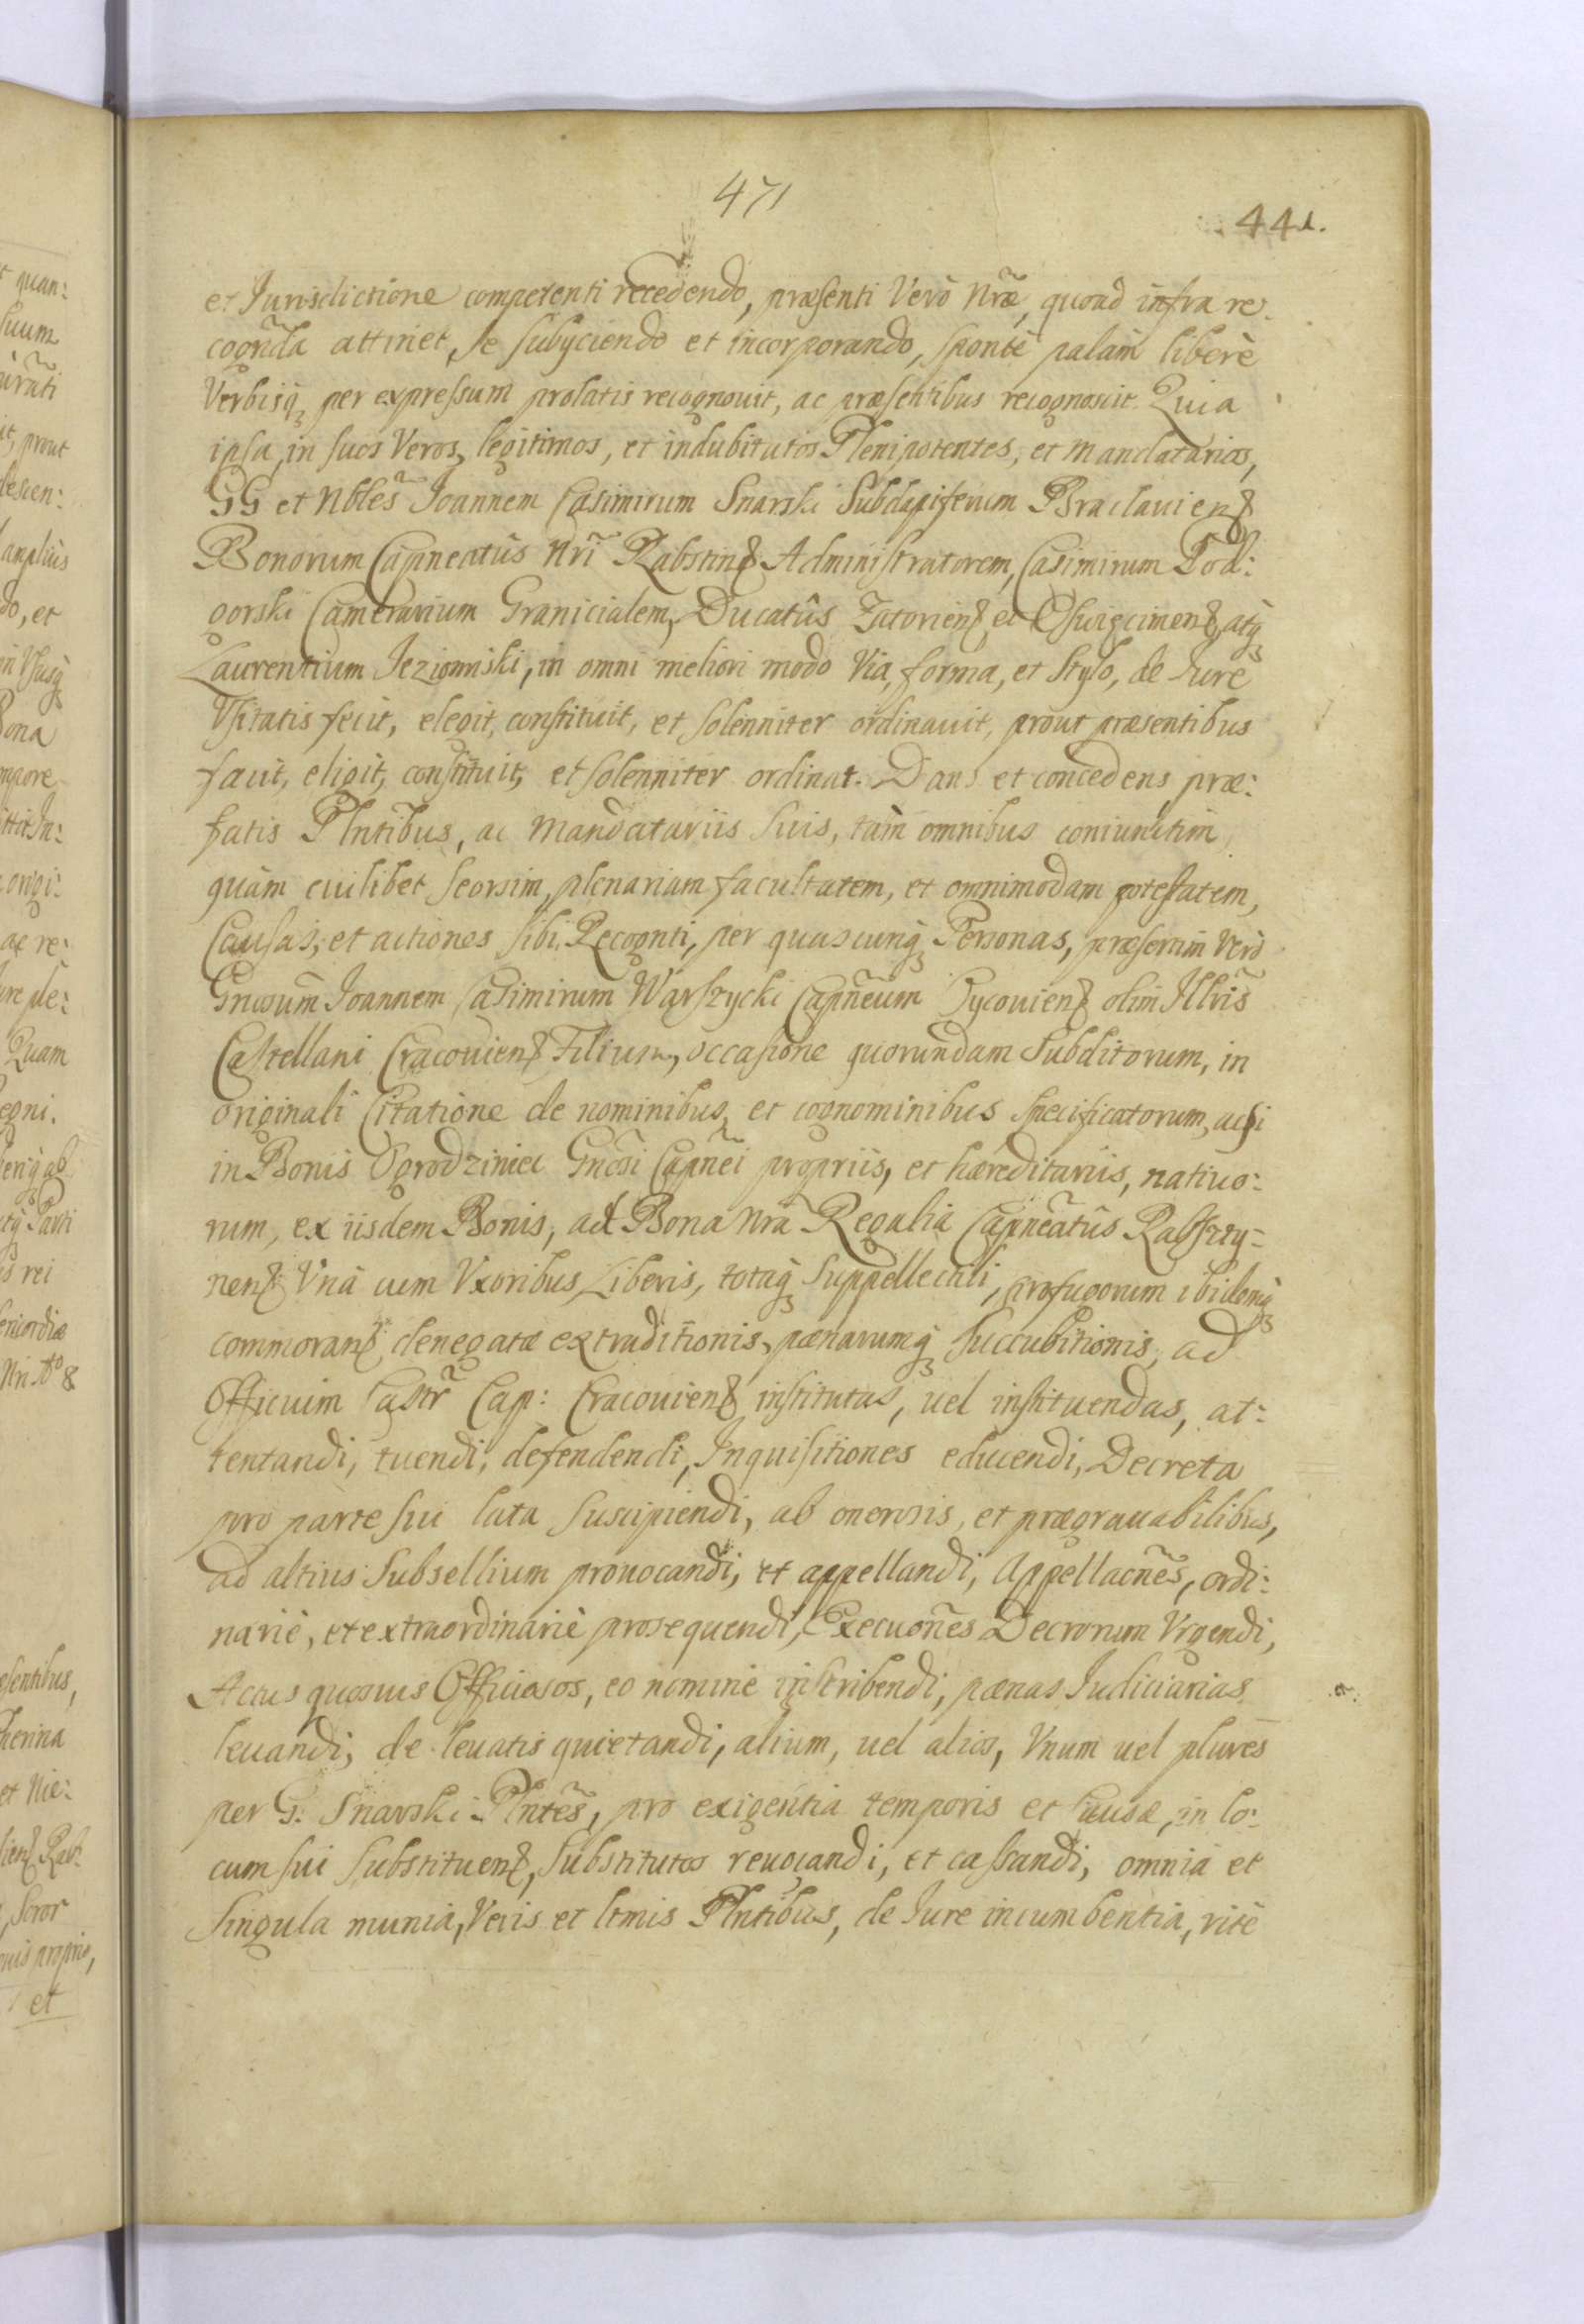 471
441.
et Jurisdictione competenti recedendo, præsenti Verò Nr̃æ, quoad infra re:
cogñda attinet, se subÿciendo et incorporando, sponte palàm liberè
Verbisq́ꝫ per expressum prolatis recognouit, ac præsentibus recognoscit. Quia
ipsa, in suos Veros, legitimos, et indubitatos Plenipotentes, et Mandatarios,
GG et Nbles̃ Joannem Casimirum Snarski Subdapiferum Braclauienꝭ
Bonorum Capneatûs Nrĩ Rabstinꝭ Administratorem, Casimirum Pod:
gorski Camerarium Granicialem, Ducatûs Zatorienꝭ et Oswięcimenꝭ, atqꝫ
Laurentium Jeziomiski, in omni meliori modo Via, forma, et Stylo, de Jure
Vsitatis fecit, elegit, constituit, et solenniter ordinauit, prout præsentibus
facit, eligit, constituit, et solenniter ordinat. Dans et concedens præ:
fatis Plntĩbus, ac Mandatariis suis, tàm omnibus coniunctim,
quàm cuilibet seorsim, plenariam facultatem, et omnimodam potestatem,
Causas, et actiones sibi Recognti, per quascunqꝫ Personas, præsertim Verò
Gnrosum̃ Joannem Casimirum Warszycki Capñeum Pycouienꝭ olim Jllris̃
Castellani Cracouienꝭ Filium, occasione quorundam Subditorum, in
originali Citatione de nominibus, et cognominibus specificatorum, acsi
in Bonis Ogrodziniec Gnosĩ Capnẽi propriis, et hæreditariis, natiuo:
rum, ex iisdem Bonis, ad Bona Nrã Regalia Capneatûs Rabszty=
nenꝭ Vnà cum Vxoribus, Liberis, totaqꝫ suppellectili, profugorum ibidemqꝫ
commoranꝭ, denegatæ extraditionis, pænarumqꝫ succubitionis, ad
Officium Castr̃ Cap: Cracouienꝭ institutas, uel instituendas, at:
tentandi, tuendi, defendendi, Inquisitiones educendi, Decreta
pro parte sui lata suscipiendi, ab onerosis, et prægrauabilibus,
ad altius Subsellium prouocandi, et appellandi, Appellacñes, ordi:
nariè, et extraordinariè prosequendi, Execuoñes Decrorum Vrgendi,
Actus quosuis Officiosos, eo nomine inscribendi, pænas Judiciarias
leuandi, de leuatis quietandi, alium, uel alios, Vnum uel plures
per G. Snarski Plntẽs, pro exigentia temporis et Causæ, in lo:
cum sui substituenꝭ, substitutos reuocandi, et cassandi, omnia et
singula munia, Veris et ltmis Plntĩbus, de Jure incumbentia, ritè